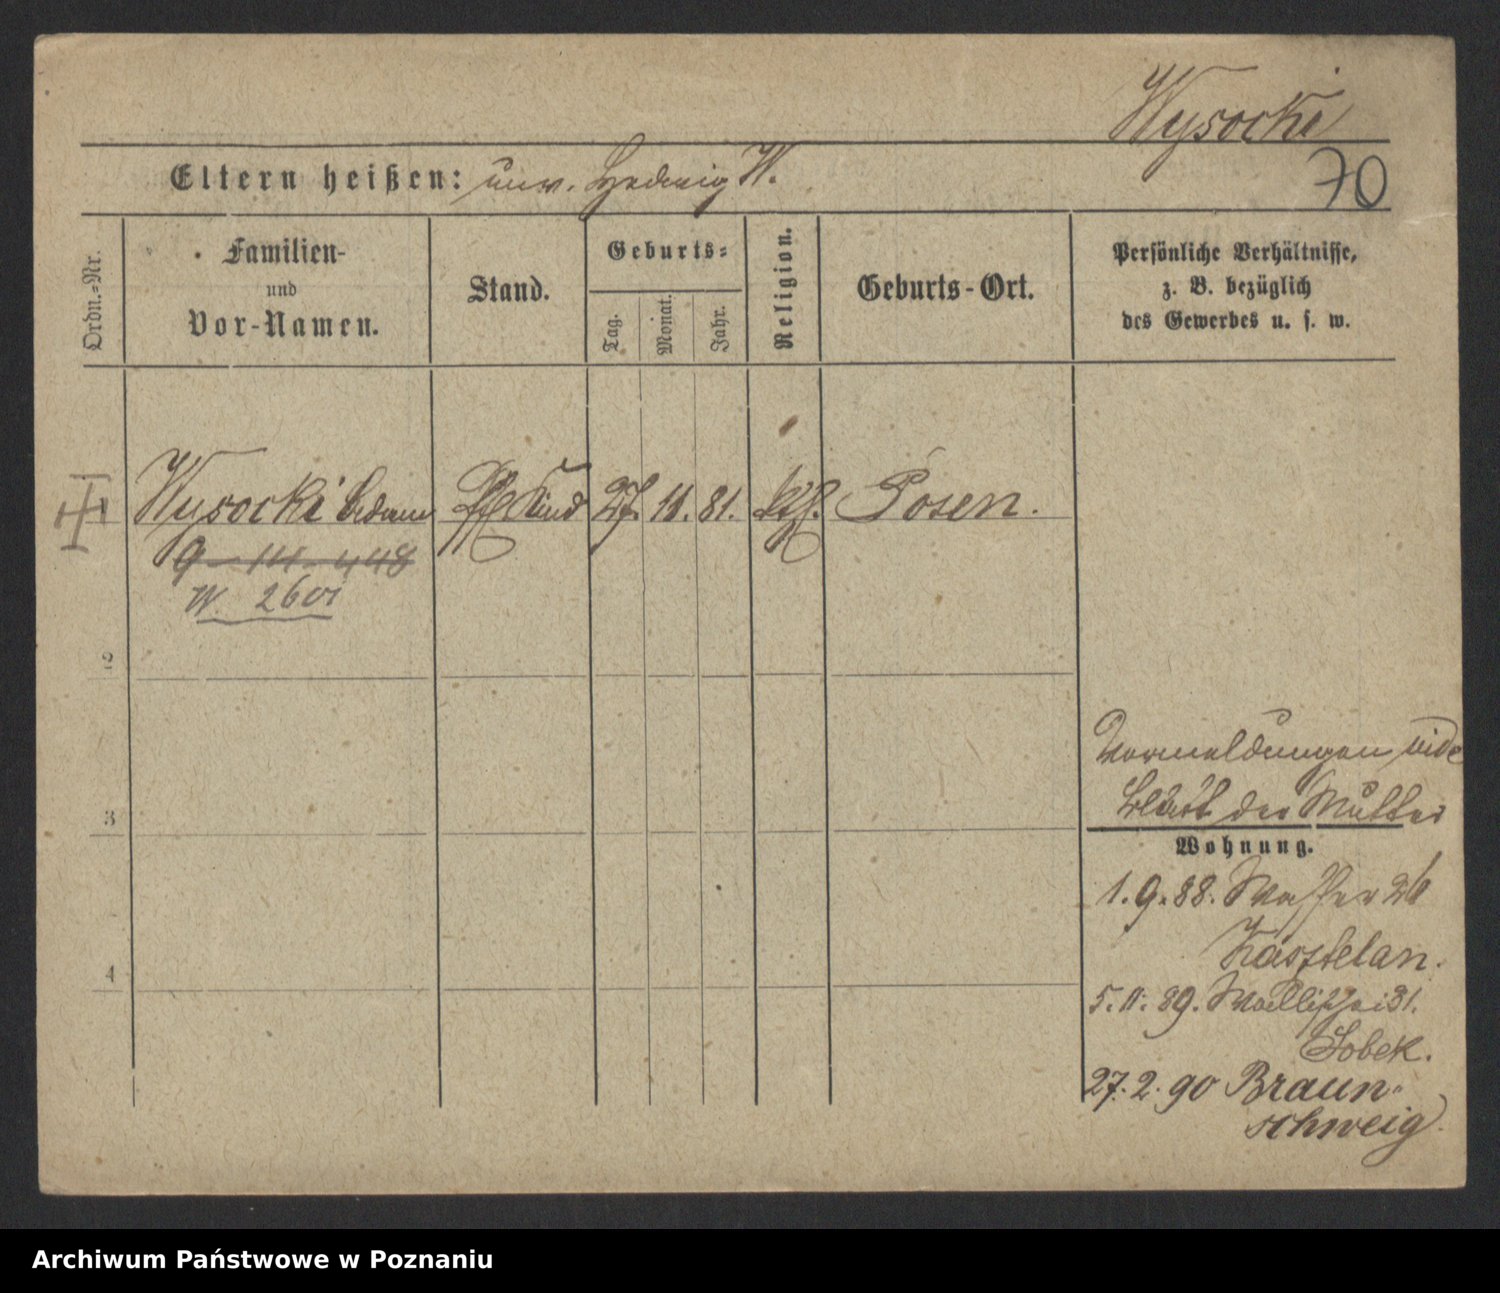 Wysocki
70
Eltern heißen: unv. Hedwig W.
Ordn.-Nr.
Familien-
und
Vor-Namen.
Stand.
Geburts-
Tag.
Monat.
Jahr.
Religion.
Geburts-Ort.
Persönliche Verhältnisse,
z. B. bezüglich
des Gewerbes u. s. w.
1 Wysocki Kind 27. 11. 81. kth. Posen.
9-III-448
W. 2601
2
3
4
Vormeldungen vide
Blatt der Mutter
Wohnung.
1. 9. 88. Wasser 26
Kasztelan.
5. 11. 89. Wallischei 31.
Sobek.
27. 2. 90 Braun-
schweig.
Archiwum Państwowe w Poznaniu